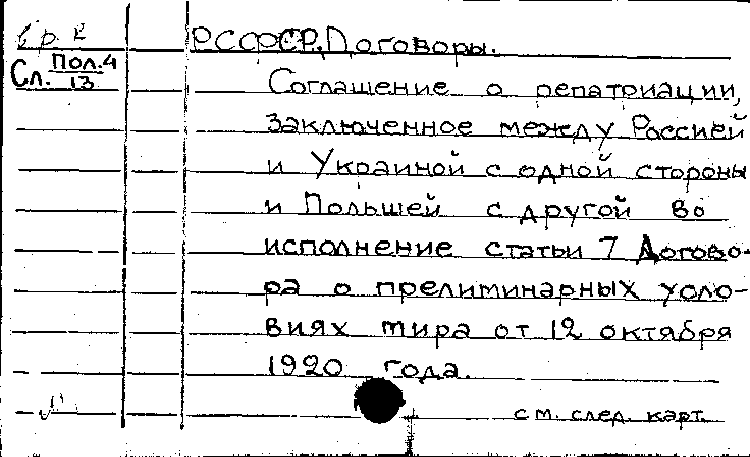 РСФСР. Договоры.
Сл. Пол.4
13
Соглашение о репатриации,
заключенное между Россией
и Украиной с одной стороны
и Польшей с другой во
исполнение статьи 7 Догово-
ра о прелиминарных усло-
виях мира от 12 октября
1920 года.
см. след. карт.